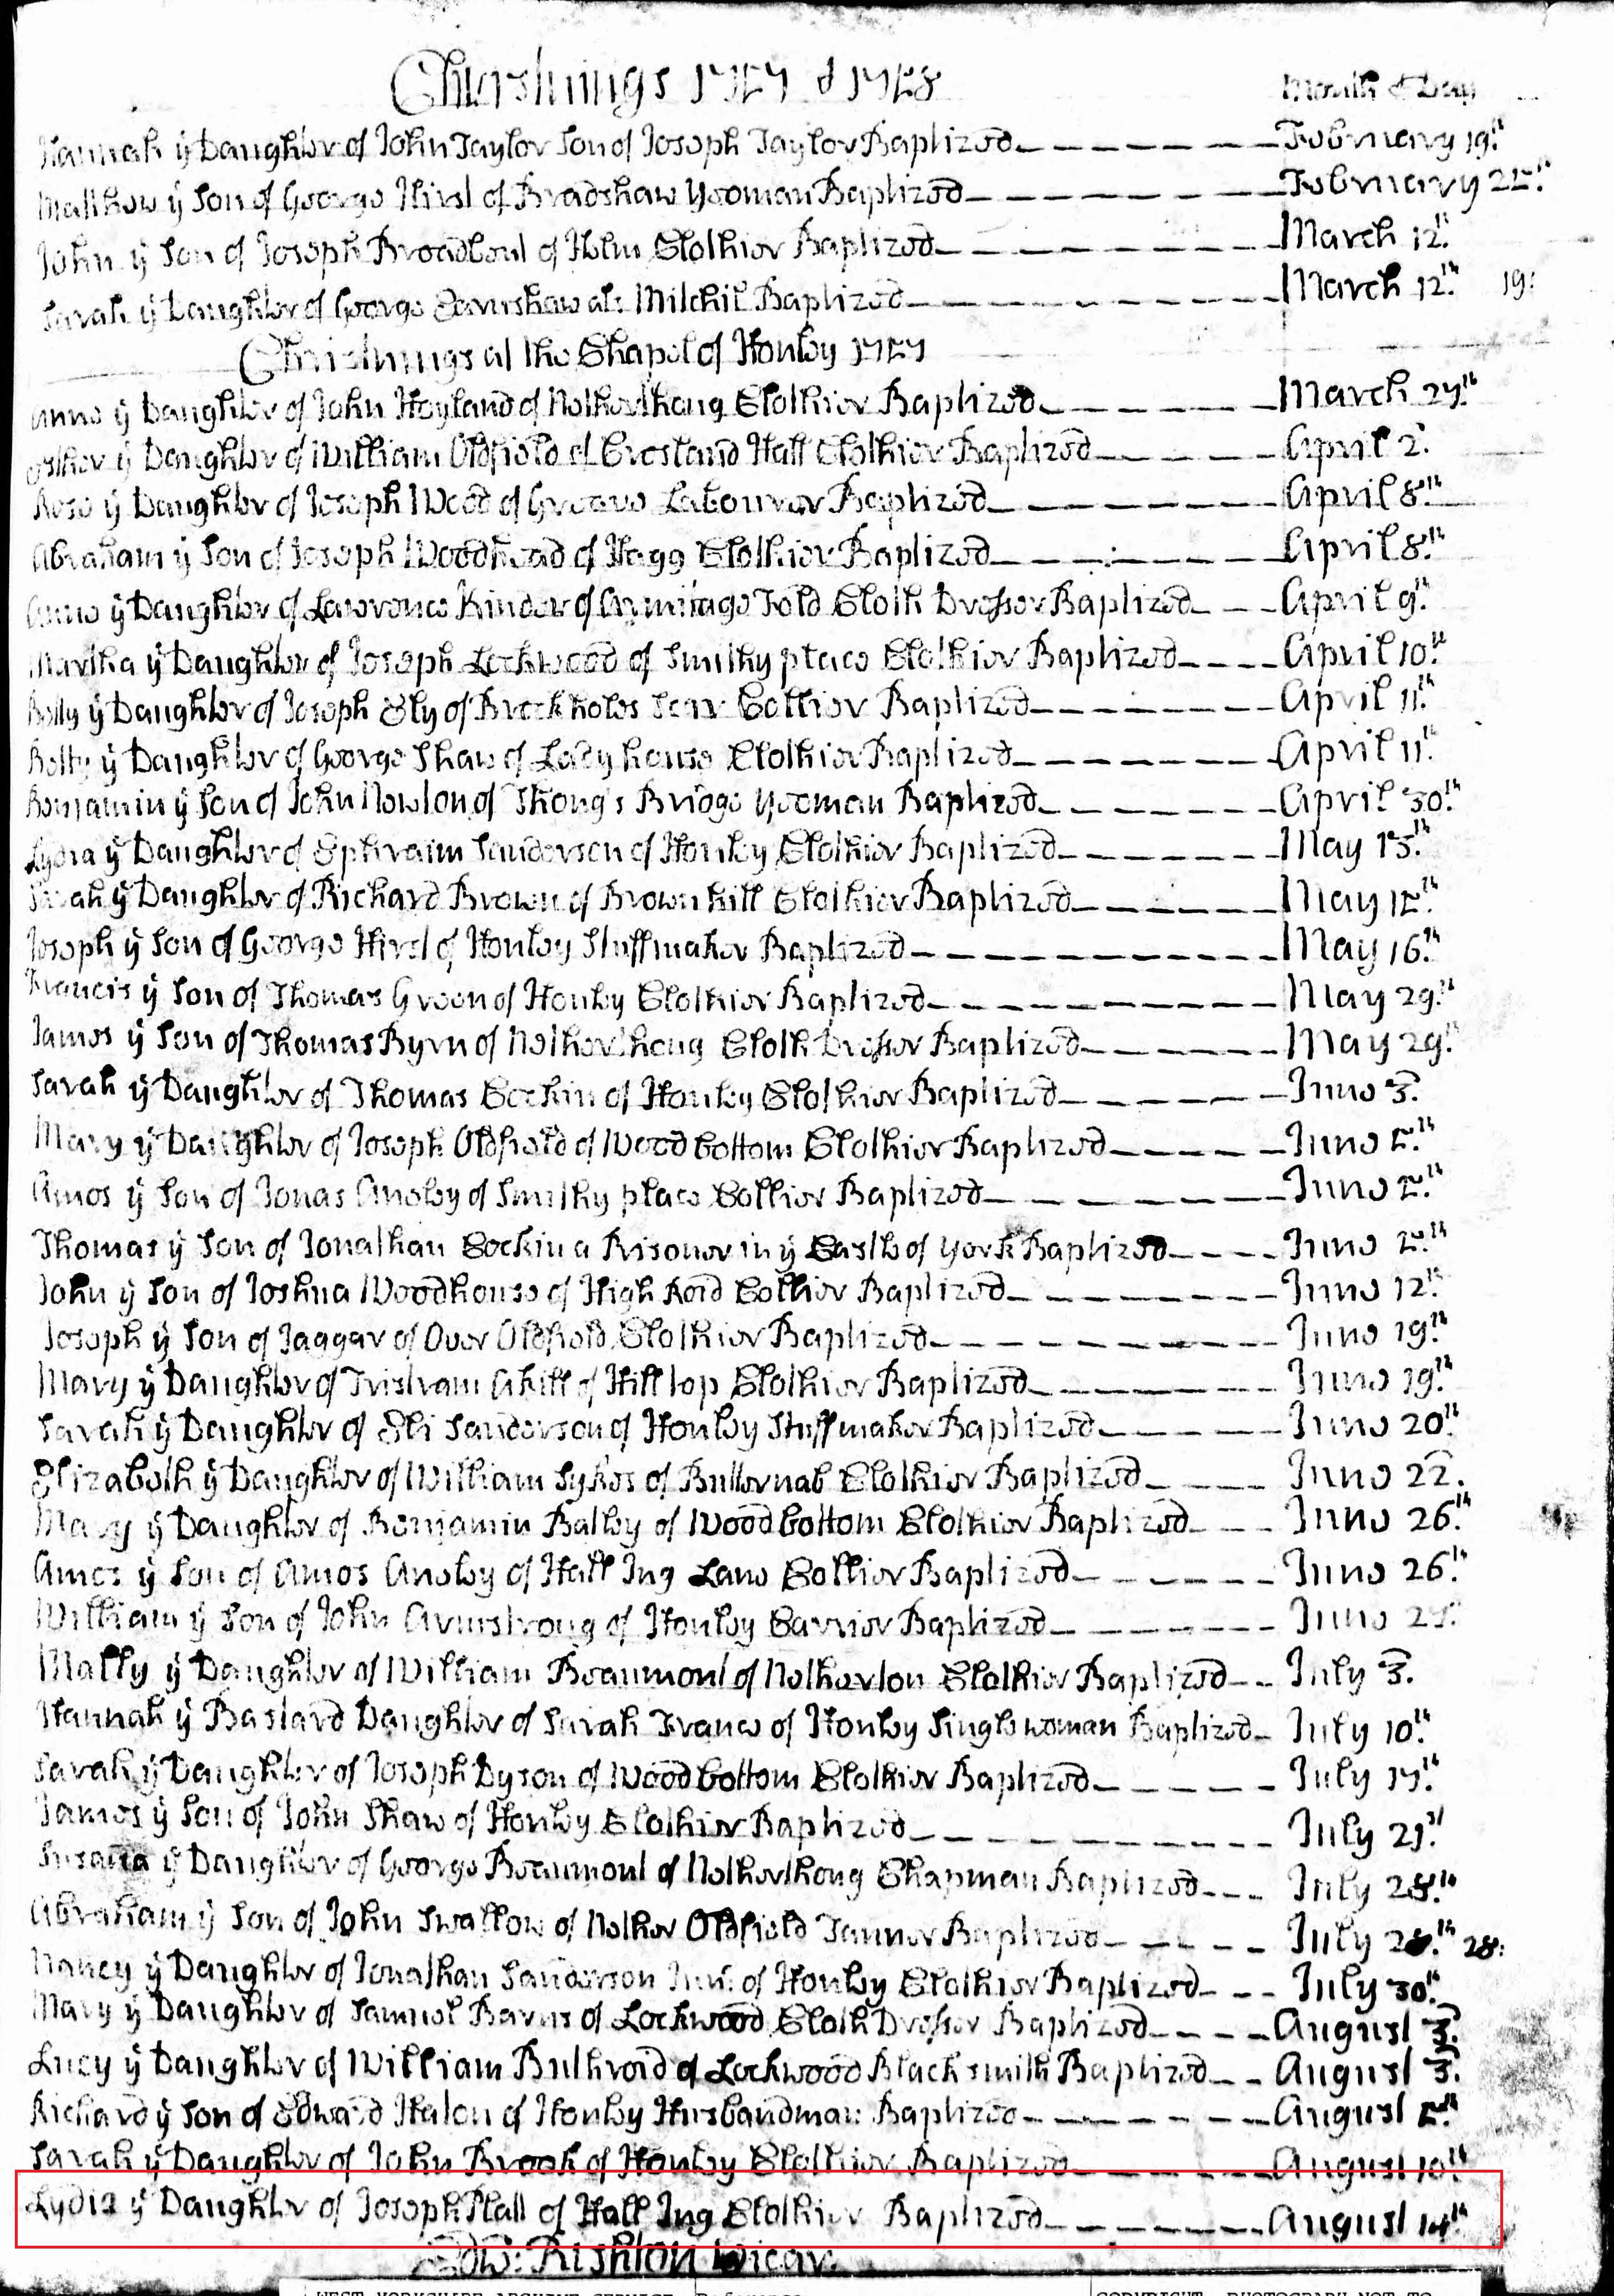 Christnings 1757 & 1758 Month & Day
Hannah ẏ Daughter of John Taylor Son of Joseph Taylor Baptized February 19th
Matthew ẏ Son of George Hirst of Bradshaw Yeoman Baptized February 25th
John ẏ Son of Joseph Broadbent of Holm Clothier Baptized March 12th
Sarah ẏ Daughter of George Earnshaw als Mitchil Baptized March 12th 19:
Christnings at the Chapel of Honley 1757
Anne ẏ Daughter of John Hoyland of Netherthong Clothier Baptized March 27th
Esther ẏ Daughter of William Oldfield of Crosland Hall Clothier Baptized April 2
Rose ẏ Daughter of Joseph Wood of Greave Labourer Baptized April 8th
Abraham ẏ Son of Joseph Woodhead of Hagg Clothier Baptized April 8th
Anne ẏ Daughter of Lawrence Kinder of Armitage Fold Cloth Dresser Baptized April 9th
Martha ẏ Daughter of Joseph Lockwood of Smithy place Clothier Baptized April 10th
Betty ẏ Daughter of Joseph Ely of Brockholes Scar Collier Baptized April 11th
Betty ẏ Daughter of George Shaw of Lady house Clothier Baptized April 11th
Benjamin ẏ Son of John Newton of Thong's Bridge Yeoman Baptized April 30th
Lydia ẏ Daughter of Ephraim Sanderson of Honley Clothier Baptized May 15th
Sarah ẏ Daughter of Richard Brown of Brownhill Clothier Baptized May 15th
Joseph ẏ Son of George Hirst of Honley Stuffmaker Baptized May 16th
Francis ẏ Son of Thomas Green of Honley Clothier Baptized May 29th
James ẏ Son of Thomas Byrn of Netherthong Cloth Dresser Baptized May 29th
Sarah ẏ Daughter of Thomas Cockin of Honley Clothier Baptized June 3
Mary ẏ Daughter of Joseph Oldfield of Wood bottom Clothier Baptized June 5th
Amos ẏ Son of Jonas Aneley of Smithy place Collier Baptized June 5th
Thomas ẏ Son of Jonathan Cockin a Prisoner in ẏ Castle of York Baptized June 5th
John ẏ Son of Joshua Woodhouse of High Roid Collier Baptized June 12th
Joseph ẏ Son of Jaggar of Over Oldfield Clothier Baptized June 19th
Mary ẏ Daughter of Tristram Akill of Hill top Clothier Baptized June 19th
Sarah ẏ Daughter of Eli Sanderson of Honley Stuffmaker Baptized June 20th
Elizabeth ẏ Daughter of William Sykes of Butternab Clothier Baptized June 22.
Mary ẏ Daughter of Benjamin Batley of Wood bottom Clothier Baptized June 26th
Amos ẏ Son of Amos Aneley of Hall Ing Lane Collier Baptized June 26th
William ẏ Son of John Armstrong of Honley Carrier Baptized June
Mally ẏ Daughter of William Beaumont of Netherton Clothier Baptized July 3.
Hannah ẏ Bastard Daughter of Sarah France of Honley Singlewoman Baptized July 10th
Sarah ẏ Daughter of Joseph Dyson of Wood bottom Clothier Baptized July 17th
James ẏ Son of John Shaw of Honley Clothier Baptized July 21st
Susana ẏ Daughter of George Beaumont of Netherthong Chapman Baptized July 28th
Abraham ẏ Son of John Swallow of Nether Oldfield Tanner Baptized July 28th 28:
Nancy ẏ Daughter of Jonathan Sanderson Junr. of Honley Clothier Baptized July 30th
Mary ẏ Daughter of Samuel Barns of Lockwood Cloth Dresser Baptized August 3
Lucy ẏ Daughter of William Buthroid of Lockwood Blacksmith Baptized August 3
Richard ẏ Son of Edward Haton of Honley Husbandman Baptized August 5th
Sarah ẏ Daughter of John Brook of Honley Clothier Baptized August 10th
Lydia ẏ Daughter of Joseph Hall of Hall Ing Clothier Baptized August 14th
Edw: Rishton Vicar.